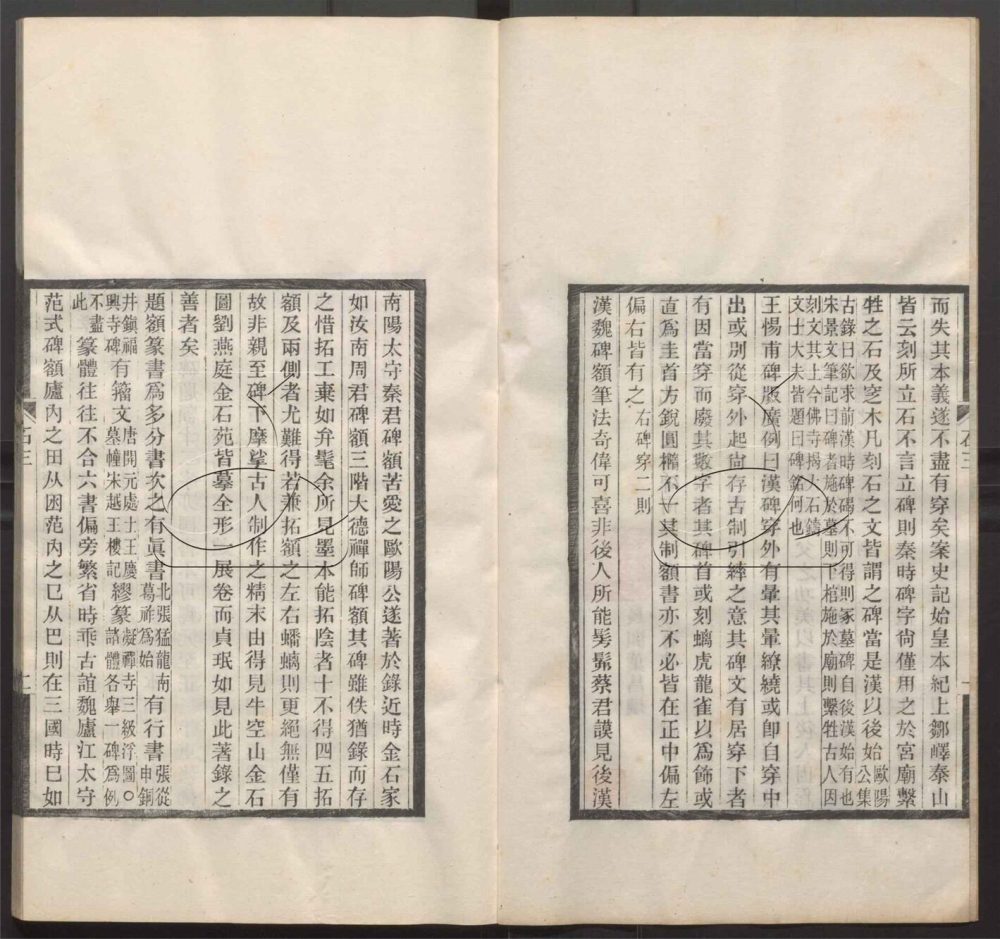 而失其本義遂不盡有穿矣案史記始皇本紀上鄒嶧泰山
皆云刻所立石不言立碑則秦時碑字尚僅用之於宮廟繫
牲之石及窆木凡刻石之文皆謂之碑當是漢以後始歐陽公集
古錄曰欲求前漢時碑碣不可得則冢墓碑自後漢始有也
宋景文筆記曰碑者施於墓則下棺施於廟則繫牲古人因
刻文其上今佛寺揭大石鏤
文士大夫皆題曰碑銘何也
王惕甫碑版廣例曰漢碑穿外有暈其暈繚繞或即自穿中
出或別從穿外起尙存古制引繂之意其碑文有居穿下者
有因當穿而廢其數字者其碑首或刻螭虎龍雀以爲飾或
直爲圭首方銳圓橢不一其制額書亦不必皆在正中偏左
偏右皆有之右碑穿二則
漢魏碑額筆法奇偉可喜非後人所能髣髴蔡君謨見後漢
南陽太守秦君碑額苦愛之歐陽公遂著於錄近時金石家
如汝南周君碑額三階大德禪師碑額其碑雖佚猶錄而存
之惜拓工棄如弁髦余所見墨本能拓陰者十不得四五拓
額及兩側者尤難得若兼拓額之左右蟠螭則更絕無僅有
故非親至碑下摩挲古人制作之精末由得見牛空山金石
圖劉燕庭金石苑皆摹全形一展卷而貞珉如見此著錄之
善者矣
題額篆書爲多分書次之有眞書北張猛龍南葛祚爲始有行書張從申銅
井鎮福
興寺碑有籀文唐開元處士王慶墓幢宋越王樓記繆篆凝禪寺三級浮圖○諸體各舉一碑爲例
不盡
此篆體往往不合六書偏旁繁省時乖古誼魏廬江太守
范式碑額廬內之田从囦范內之㔾从巴則在三國時已如
石三
二